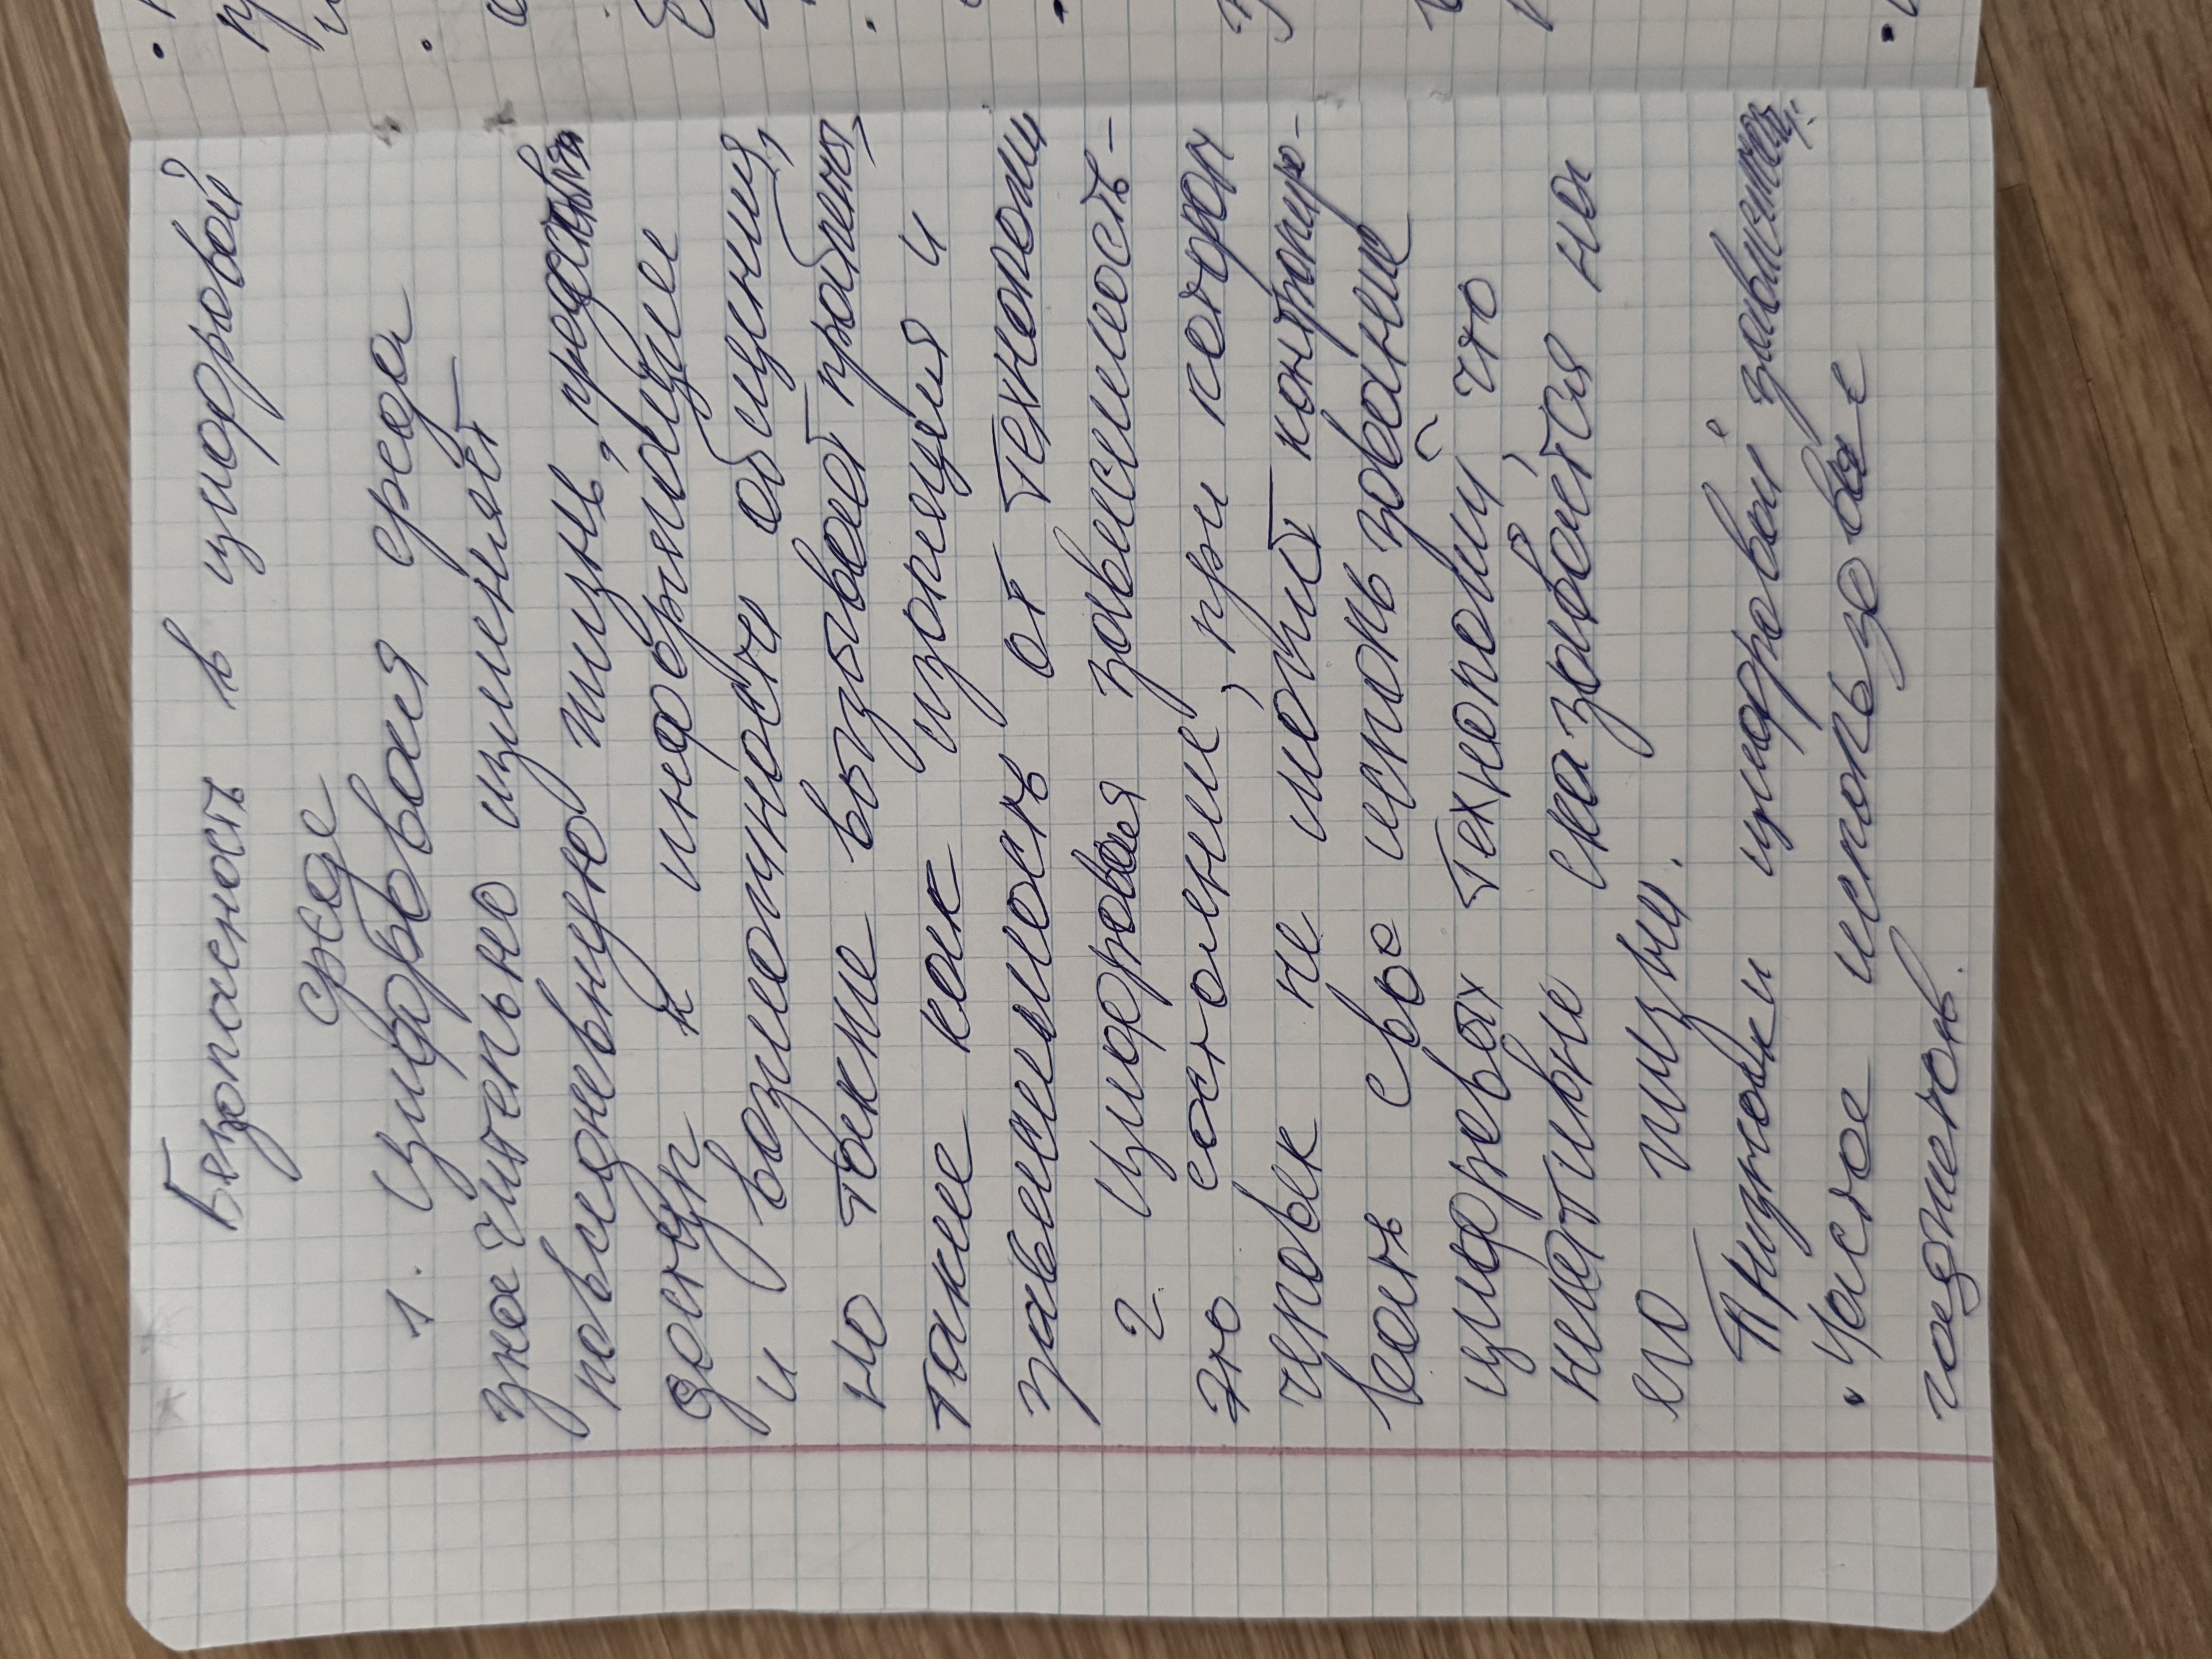 Безопасность в цифровой
среде
1. Цифровая среда
значительно изменяет
повседневную жизнь, предоставляя
доступ к информации
и возможности общения,
но также вызывает проблемы,
такие как изоляция и
зависимость от технологий
2 Цифровая зависимость-
это состояние, при котором
человек не может контролиро-
вать своё использование
цифровых технологий, что
негативно сказывается на
его жизни.
Признаки цифровой зависимости:
• Частое использование
гаджетов.